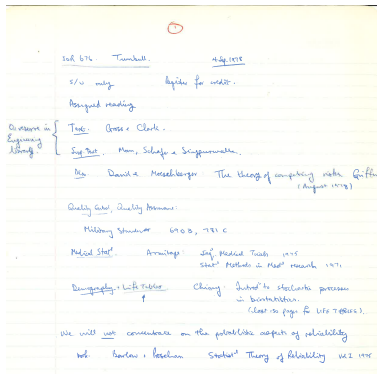 1
SOR 676. Turnbull. 4 Sep. 1978
S/U only Register for credit.
Assigned reading
On reserve in Engineering library.
Text: Gross & Clark.
Sup Text. Mann, Schafer & Singpurwalla.
Also David & Moeschberger. The theory of competing risks Griffin
(August 1978)
Quality Control, Quality Assurance.
Military Standard 690B, 781C
Medical Stats Armitage: Seq. Medical Trials 1975
Stat. Methods in Med. research 1971
Demography & Life Tables Chiang: Introd. to stochastic processes
in biostatistics.
(last 150 pages for LIFE TABLES).
We will not concentrate on the probabilistic aspects of reliability
Barlow & Proschan Statist. Theory of Reliability Vol. I 1975